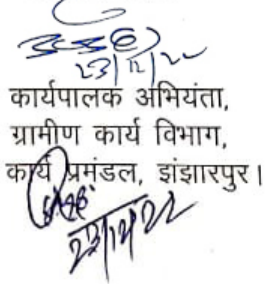 23/12/22
कार्यपालक अभियंता,
ग्रामीण कार्य विभाग,
कार्य प्रमंडल, झंझारपुर।
23/12/22